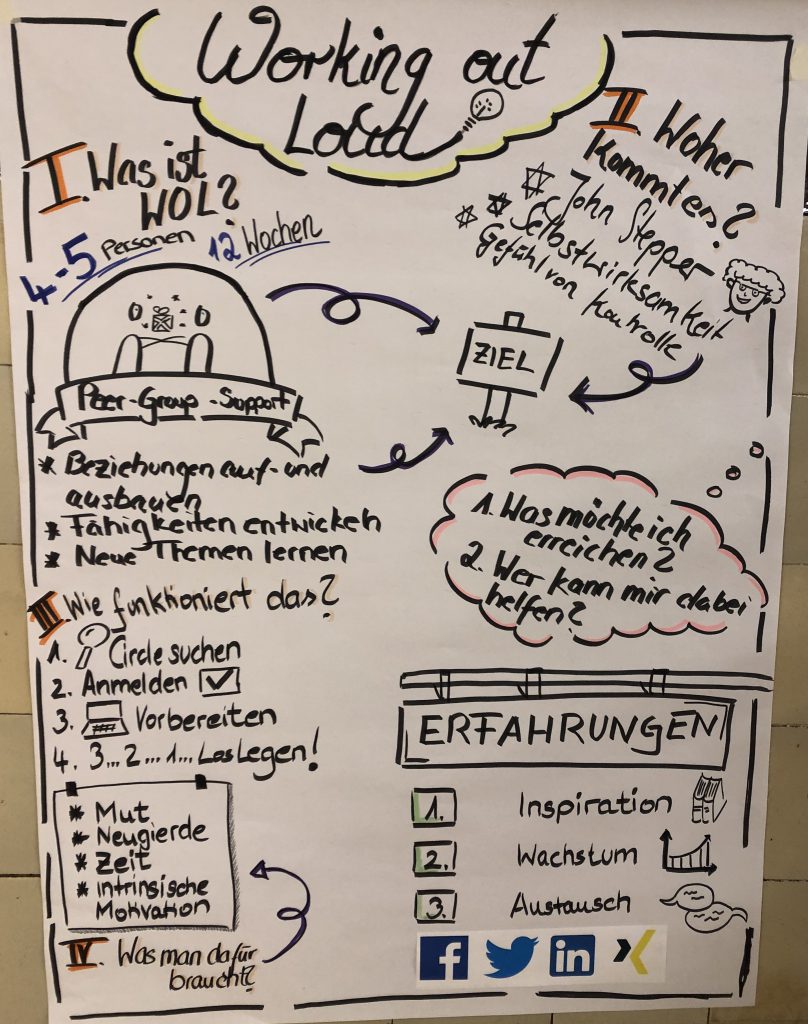 Working out
Loud
I. Was ist
WOL?
4-5 Personen
12 Wochen
Peer-Group-Support
* Beziehungen auf- und
ausbauen
* Fähigkeiten entwickeln
* Neue Themen lernen
II Woher
kommt es?
John Stepper
Selbstwirksamkeit
Gefühl von Kontrolle
ZIEL
1. Was möchte ich
erreichen?
2. Wer kann mir dabei
helfen?
III. Wie funktioniert das?
1. Circle suchen
2. Anmelden
3. Vorbereiten
4. 3...2...1... Loslegen!
* Mut
* Neugierde
* Zeit
* intrinsische
Motivation
IV. Was man dafür
braucht?
ERFAHRUNGEN
1. Inspiration
2. Wachstum
3. Austausch
f in